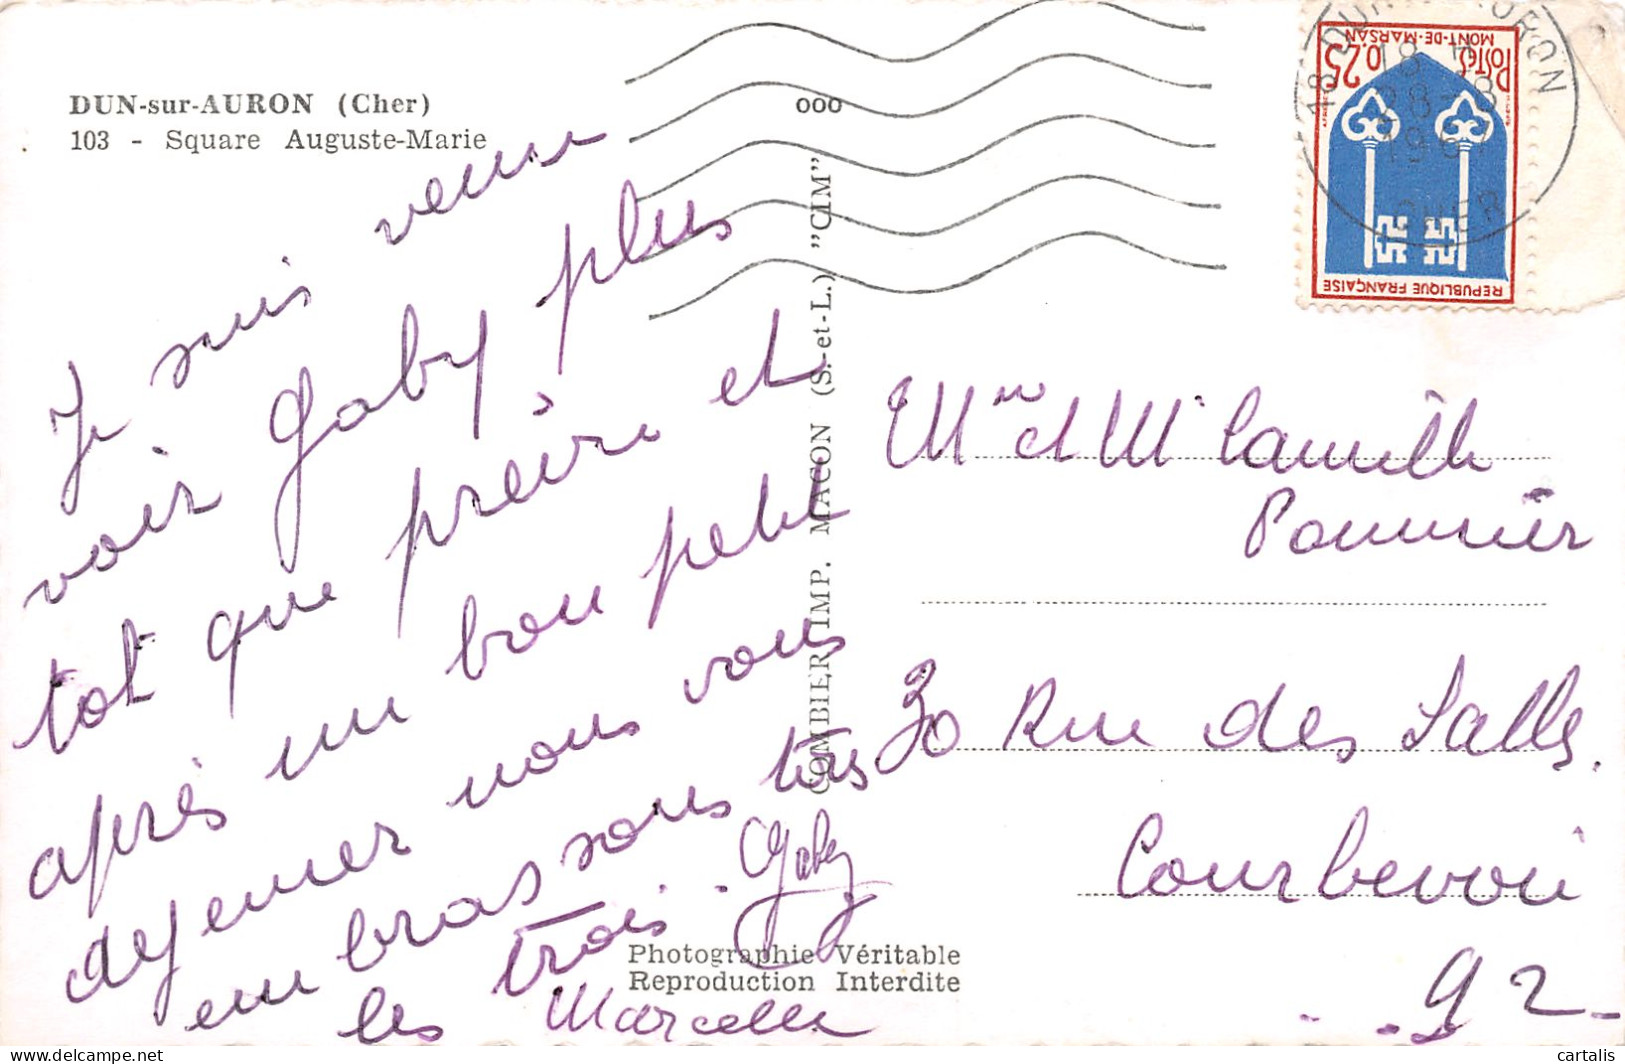 DUN-sur-AURON (Cher)
103 - Square Auguste-Marie
Je suis venu
voir Gaby plus
tot que preire et
après un bon petit
dejeuner nous vous
embrassons tous
les trois.
Gaby
Marcelle
ooo
COMBIER IMP. MACON (S.-et-L.) "CIM"
Photographie Véritable
Reproduction Interdite
18 DUN AURON
18
28-8
CHER
POSTES 0,25
MONT-DE-MARSAN
REPUBLIQUE FRANÇAISE
Mme et Mr Camille
Pommier
30 Rue des Salles.
Courbevoie
92
cartalis